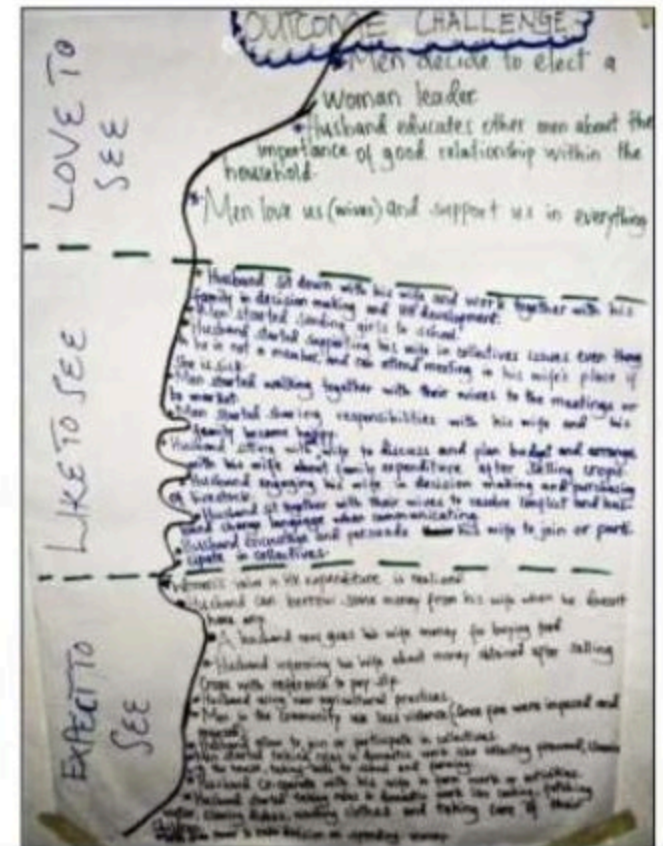 OUTCOME CHALLENGE
LOVE TO
SEE
Men decide to elect a
woman leader
Husband educates other men about the
importance of good relationship within the
household.
Men love us (wives) and support us in everything
LIKE TO SEE
Husband sit down with his wife and work together with his
family in decision making and development.
Men started sending girls to school.
Husband started supporting his wife in collectives issues even though
he is not a member, and can attend meeting in his wife's place if
she is sick.
Men started walking together with their wives to the meetings or
to market.
Men started sharing responsibilities with his wife and his
family become happy.
Husband sitting with wife to discuss and plan budget and arrange
with his wife about family expenditure after selling crops.
Husband engaging his wife in decision making and purchasing
of livestock.
Husband sit together with their wives to resolve conflict and
change language when communicating.
Husband encourage and persuade his wife to join or parti-
cipate in collectives.
EXPERT TO
SEE
value in HH expenditure is realised
Husband can borrow some money from his wife when he doesn't
have any
A husband now gives his wife money for buying food
Husband informing his wife about money obtained after selling
crops with reference to pay slip
Husband using new agricultural practices.
Men in the community use less violence (once few were imposed and
Husband allow to join or participate in collectives.
Men started taking roles in domestic work like collecting firewood,
the house, taking to school and farming.
Husband co-operate with his wife in farm work or activities.
Husband started taking roles in domestic work like cooking, fetching
water, cleaning dishes, washing clothes and taking care of their
to make decision on spending money.